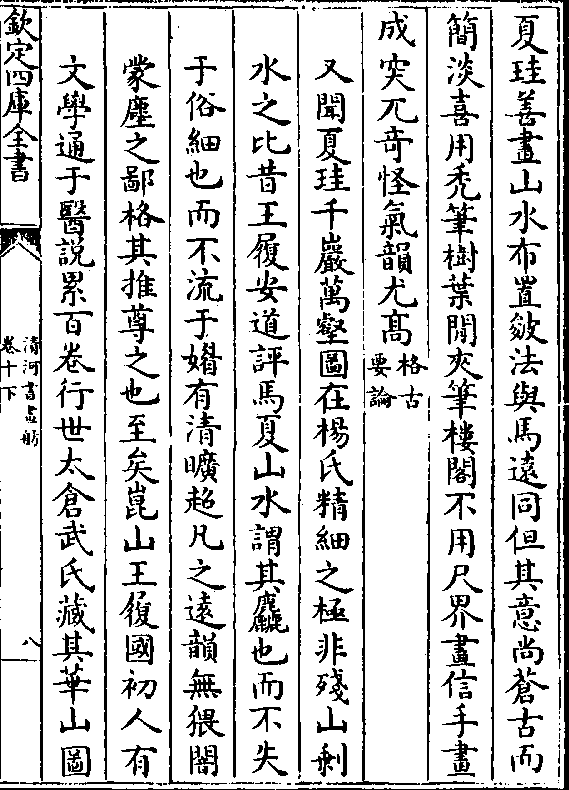 夏珪善畫山水布置皴法與馬遠同但其意尚蒼古而
簡淡喜用禿筆樹葉間夾筆樓閣不用尺界畫信手畫
成突兀奇怪氣韻尤髙格古要論
又聞夏珪千巖萬壑圖在楊氏精細之極非殘山剰
水之比昔王履安道評馬夏山水謂其麤也而不失
于俗細也而不流于媚有清曠超凡之遠韻無猥闇
蒙塵之鄙格其推尊之也至矣崑山王履國初人有
文學通于醫説累百卷行世太倉武氏藏其華山圖
欽定四庫全書
清河書畫舫
卷十下
八